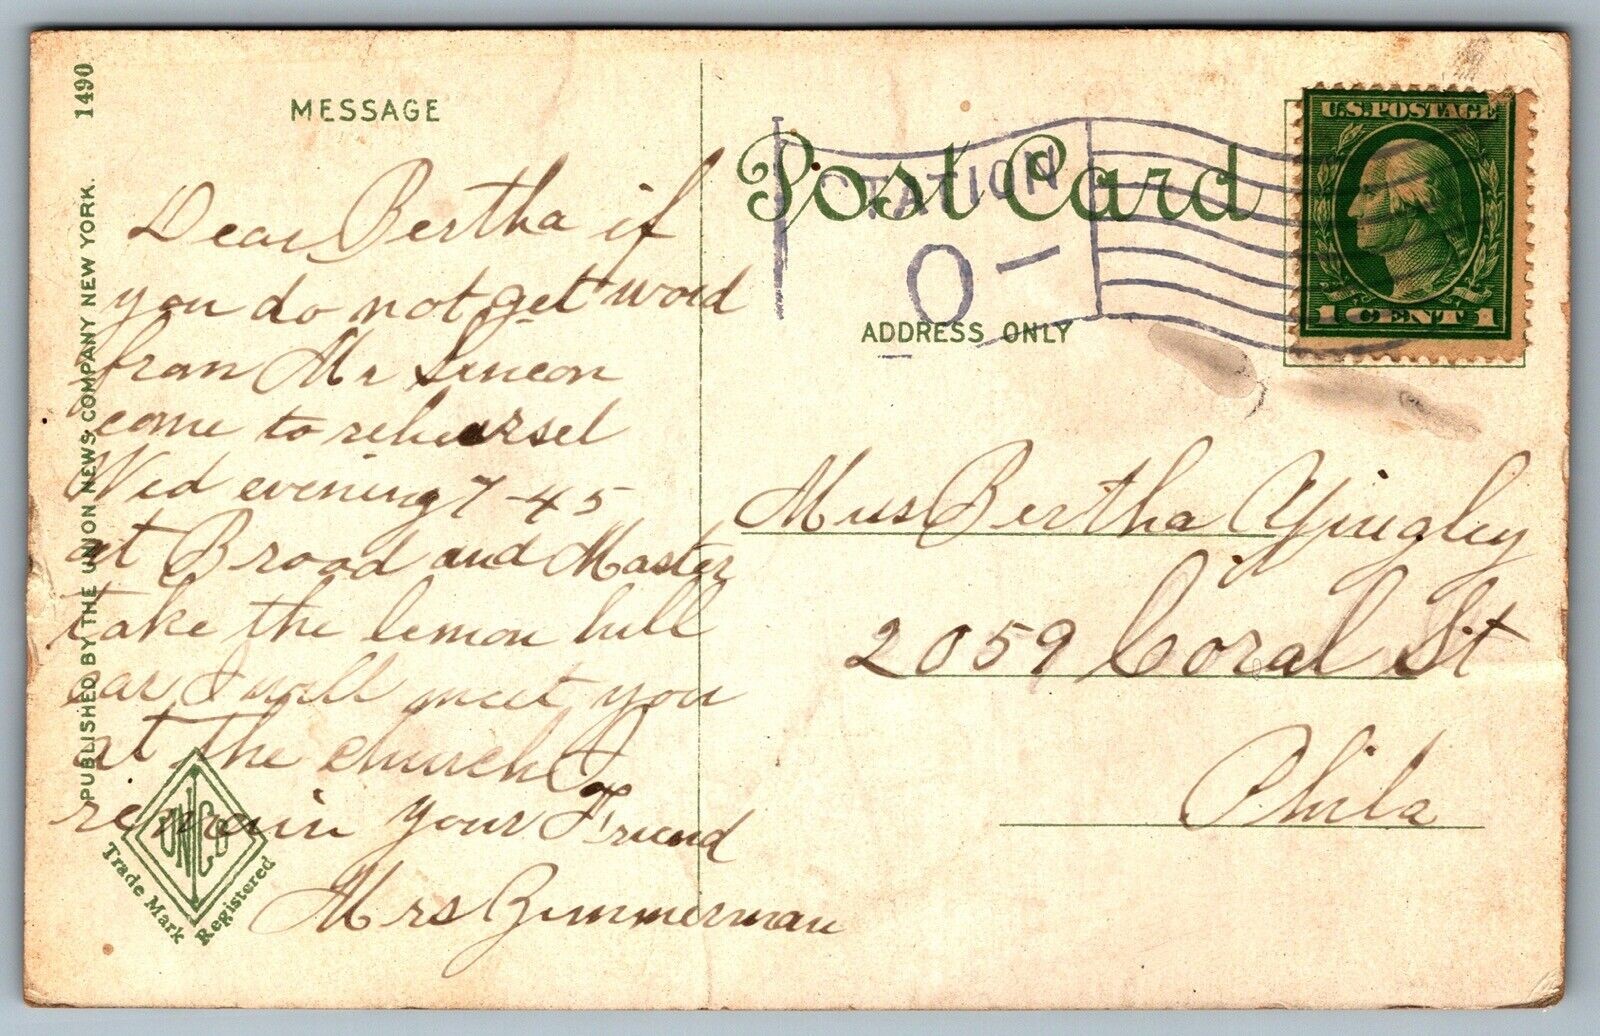 1490
PUBLISHED BY THE UNION NEWS COMPANY NEW YORK.
MESSAGE
Dear Bertha if
you do not get word
from Mr Simeon
come to rehearsel
Wed evening 7-45
at Broad and Master
take the lemon hill
car I will meet you
at the church I
remain your Friend
Mrs Zimmerman
UNCO
Trade Mark
Registered
Post Card
STATION
O
ADDRESS ONLY
U.S. POSTAGE
1 CENT 1
Miss Bertha Yingley
2059 Coral St
Phila